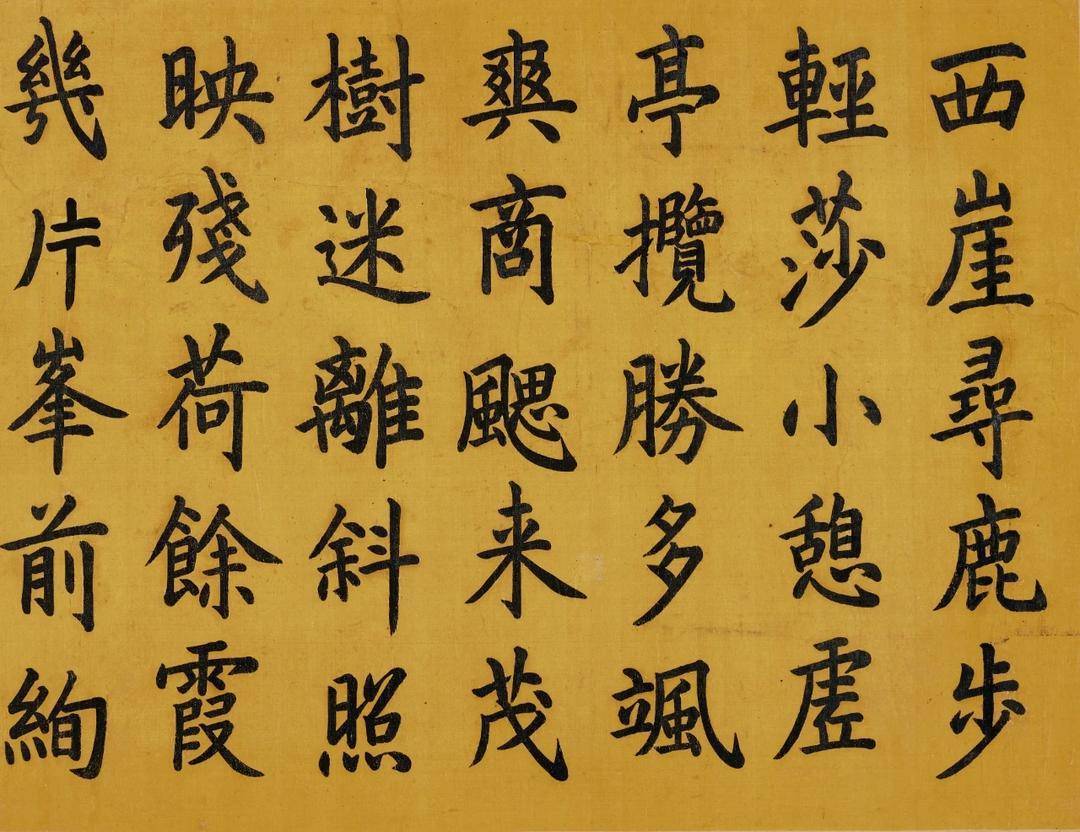 西崖尋鹿步
輕莎小憩虛
亭攬勝多颯
爽商颸来茂
樹迷離斜照
映殘荷餘霞
幾片峯前絢